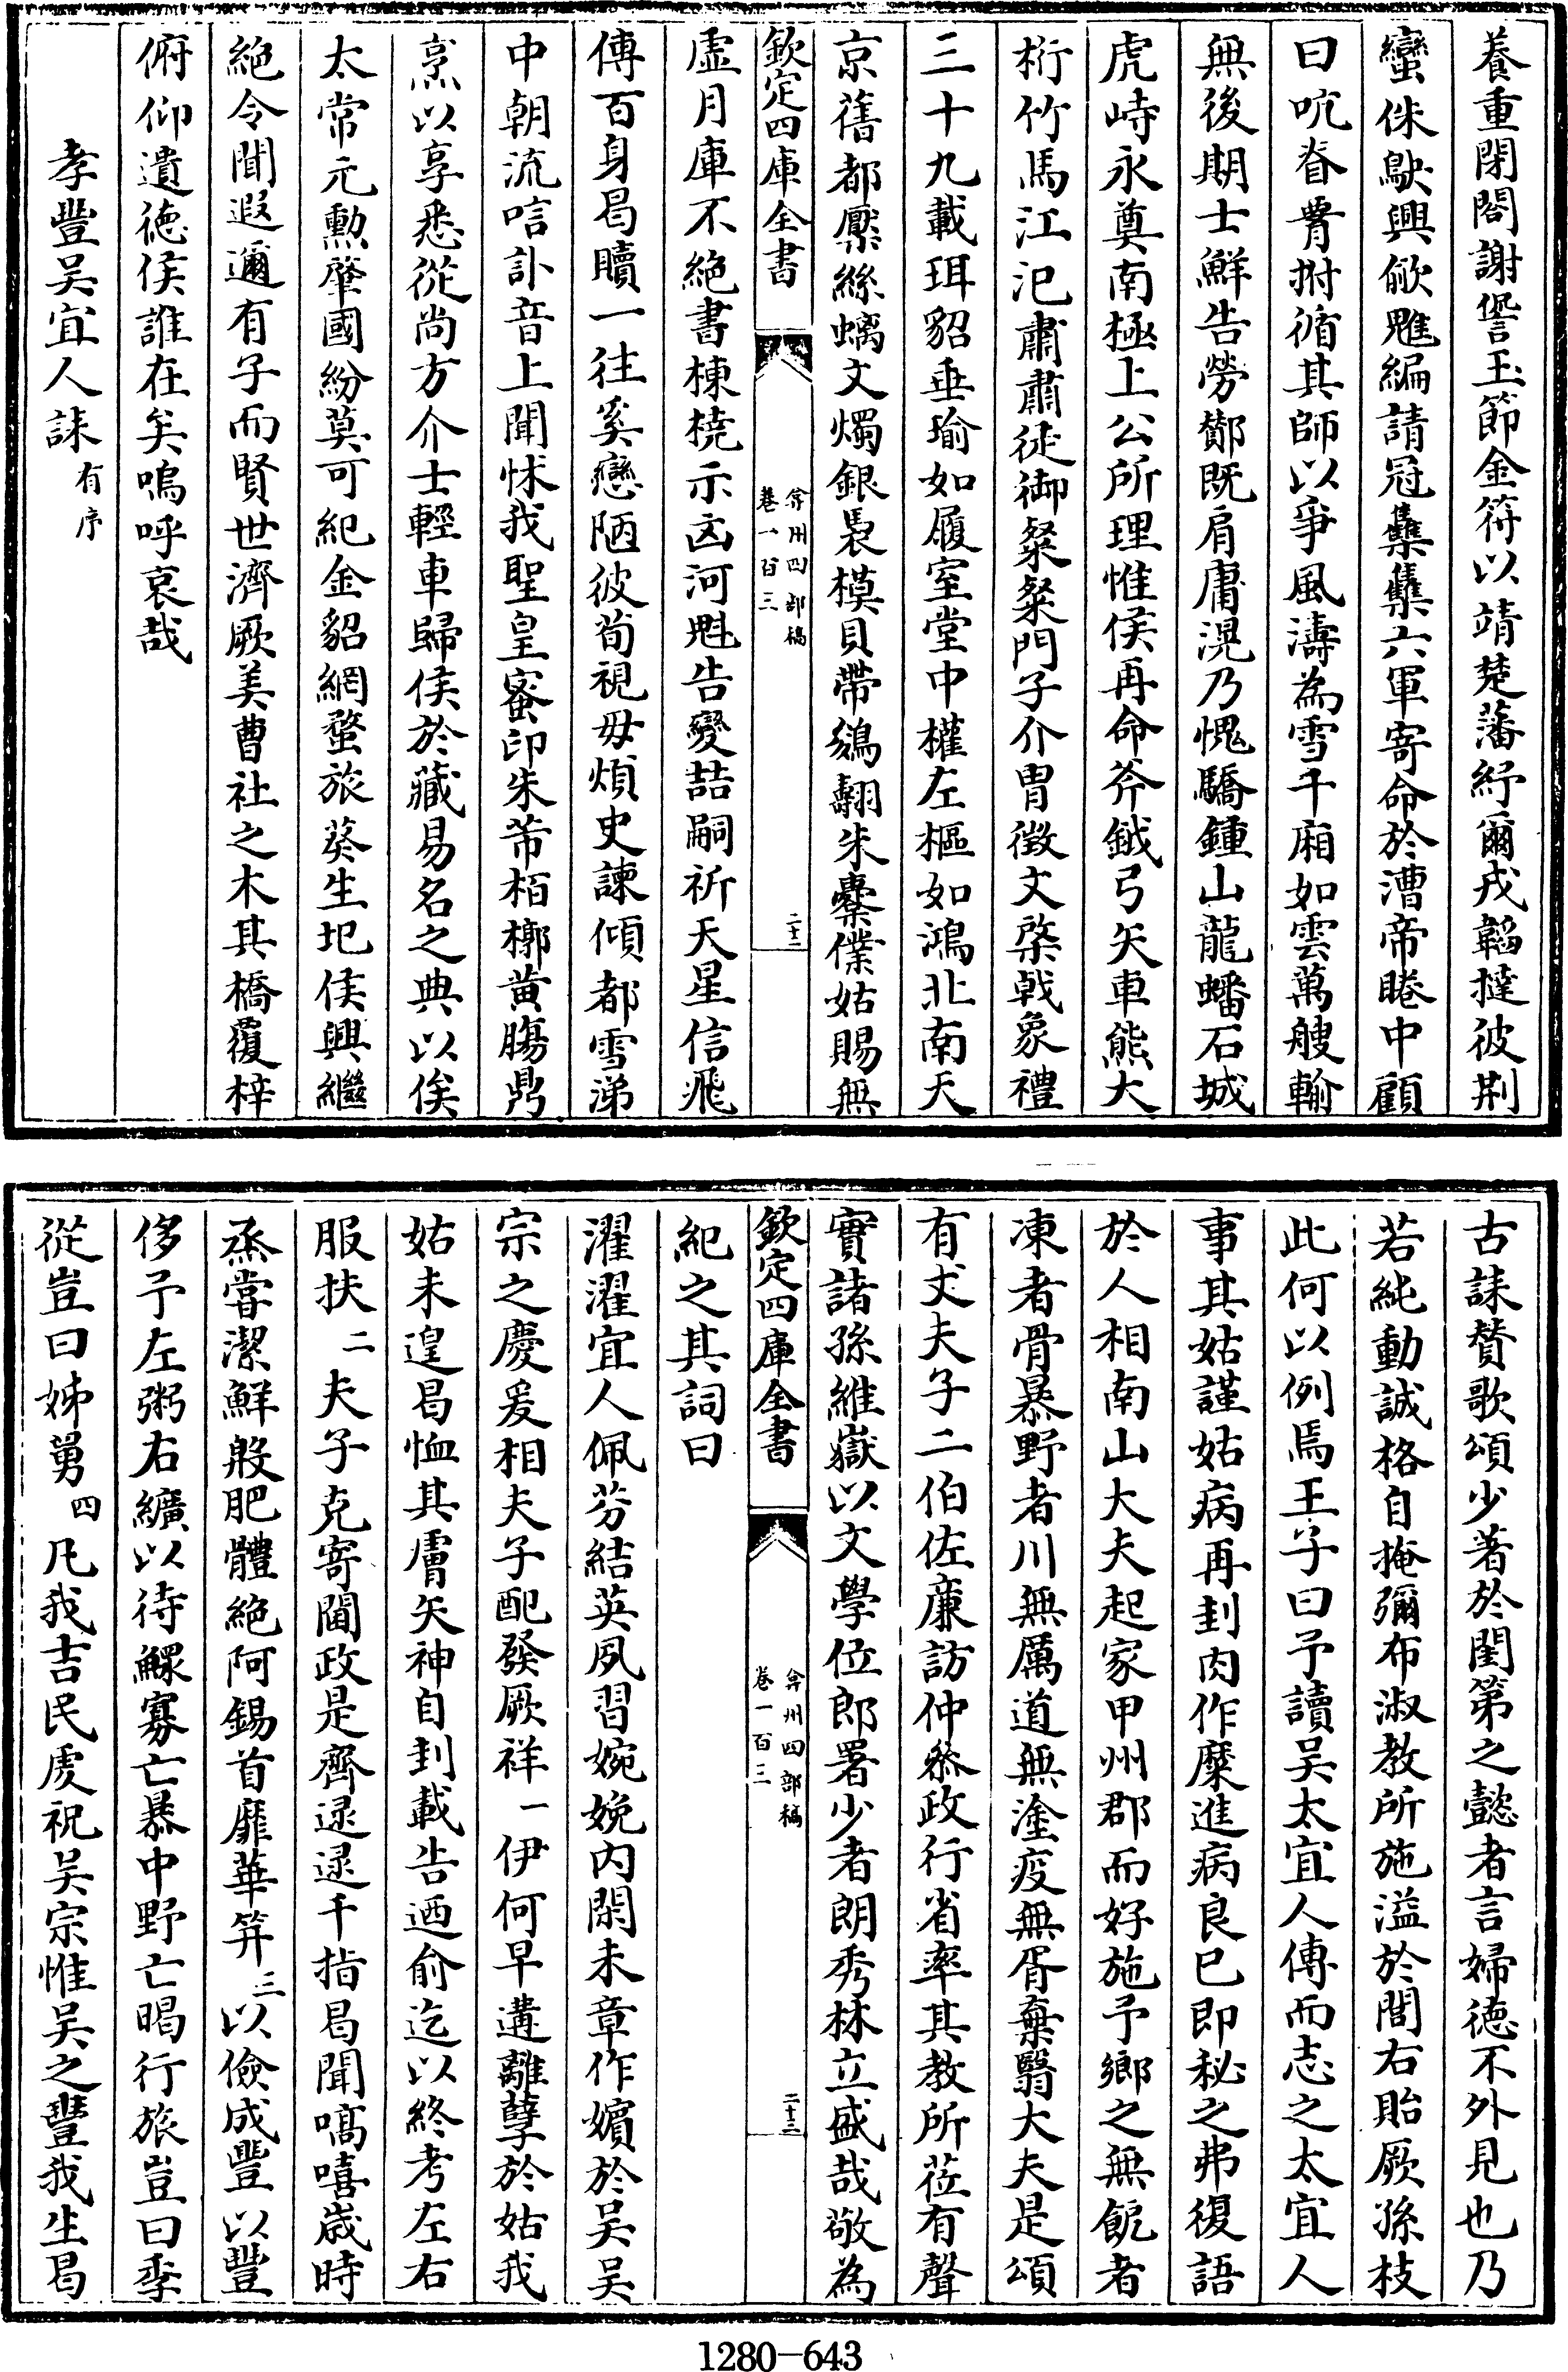 養重閉閤謝譽玉節金符以靖楚藩紓爾戎韜撻彼荆
蠻侏鴃興歈魋編請冠集集六軍寄命於漕帝睠中顧
曰吭脊膂拊循其師以爭風濤為雪千廂如雲萬艘輸
無後期士鮮告勞鄼既肩庸滉乃愧驕鍾山龍蟠石城
虎峙永奠南極上公所理惟侯再命斧鉞弓矢車熊大
桁竹馬江汜肅肅徒御粲粲門子介胄徵文棨戟象禮
三十九載珥貂垂瑜如履室堂中權左樞如鴻北南天
京舊都縻絲螭文燭銀褭模貝帶鷂翿朱櫜僕姑賜無
欽定四庫全書
弇州四部稿
卷一百三
二十二
虛月庫不絕書棟橈示凶河魁告變喆嗣祈天星信飛
傳百身曷贖一往奚戀陋彼荀視毋煩史諫傾都雪涕
中朝流唁訃音上聞怵我聖皇蜜印朱芾栢槨黄腸鼎
烹以享悉從尚方介士輕車歸侯於藏易名之典以俟
太常元勲肇國紛莫可紀金貂網蝥旅葵生圯侯興繼
絕令聞遐邇有子而賢世濟厥美曹社之木其橋覆梓
俯仰遺徳侯誰在矣嗚呼哀哉
孝豐吴宜人誄有序
古誄賛歌頌少著於閨第之懿者言婦徳不外見也乃
若純動誠格自掩彌布淑教所施溢於閭右貽厥孫枝
此何以例焉王子曰予讀吴太宜人傳而志之太宜人
事其姑謹姑病再刲肉作糜進病良已即秘之弗復語
於人相南山大夫起家甲州郡而好施予鄉之無飽者
凍者骨暴野者川無厲道無塗疫無胥棄翳大夫是頌
有丈夫子二伯佐亷訪仲叅政行省率其教所莅有聲
實諸孫維嶽以文學位郎署少者朗秀林立盛哉敬為
欽定四庫全書
弇州四部稿
卷一百三
二十三
紀之其詞曰
濯濯宜人佩芬結英夙習婉娩内閑未章作嬪於吴吴
宗之慶爰相夫子配發厥祥一伊何早遘離孽於姑我
姑未遑曷恤其膚矢神自刲載告迺俞迄以終考左右
服扶二夫子克寄閫政是齊逯逯千指曷聞嗃嘻歲時
烝嘗潔鮮殽肥體絕阿錫首靡華筓三以儉成豐以豐
侈予左粥右纊以待鰥寡亡暴中野亡暍行旅豈曰季
從豈曰姊舅四凡我吉民虔祝吴宗惟吴之豐我生曷
1280-643